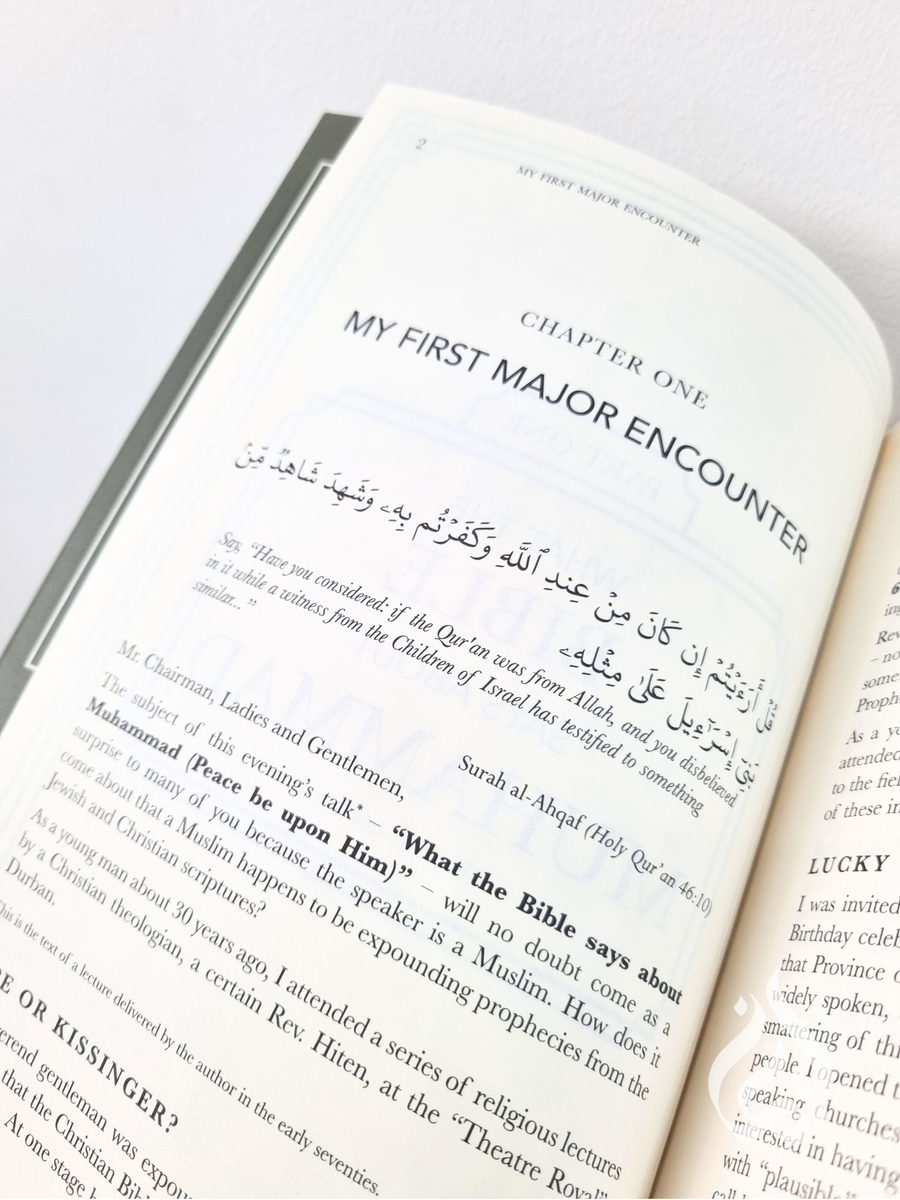 2
MY FIRST MAJOR ENCOUNTER
CHAPTER ONE
MY FIRST MAJOR ENCOUNTER
قُلْ أَرَءَيْتُمْ إِن كَانَ مِنْ عِندِ ٱللَّهِ وَكَفَرْتُم بِهِۦ وَشَهِدَ شَاهِدٌ مِّنۢ
بَنِىٓ إِسْرَٰٓءِيلَ عَلَىٰ مِثْلِهِۦ
Say, “Have you considered: if the Qur'an was from Allah, and you disbelieved
in it while a witness from the Children of Israel has testified to something
similar...”
Surah al-Ahqaf (Holy Qur'an 46:10)
Mr. Chairman, Ladies and Gentlemen,
The subject of this evening's talk* – “What the Bible says about
Muhammad (Peace be upon Him)” – will no doubt come as a
surprise to many of you because the speaker is a Muslim. How does it
come about that a Muslim happens to be expounding prophecies from the
Jewish and Christian scriptures?
As a young man about 30 years ago, I attended a series of religious lectures
by a Christian theologian, a certain Rev. Hiten, at the “Theatre Royal”
Durban.
This is the text of a lecture delivered by the author in the early seventies.
OR KISSINGER?
gentleman was
that the Christian
At one stage
Rev
– no
some
As a
attended
to the
of these
LUCKY
I was invited
Birthday
that Province
widely spoken,
smattering of
people. I opened
speaking churches
interested in having
with “plausible”